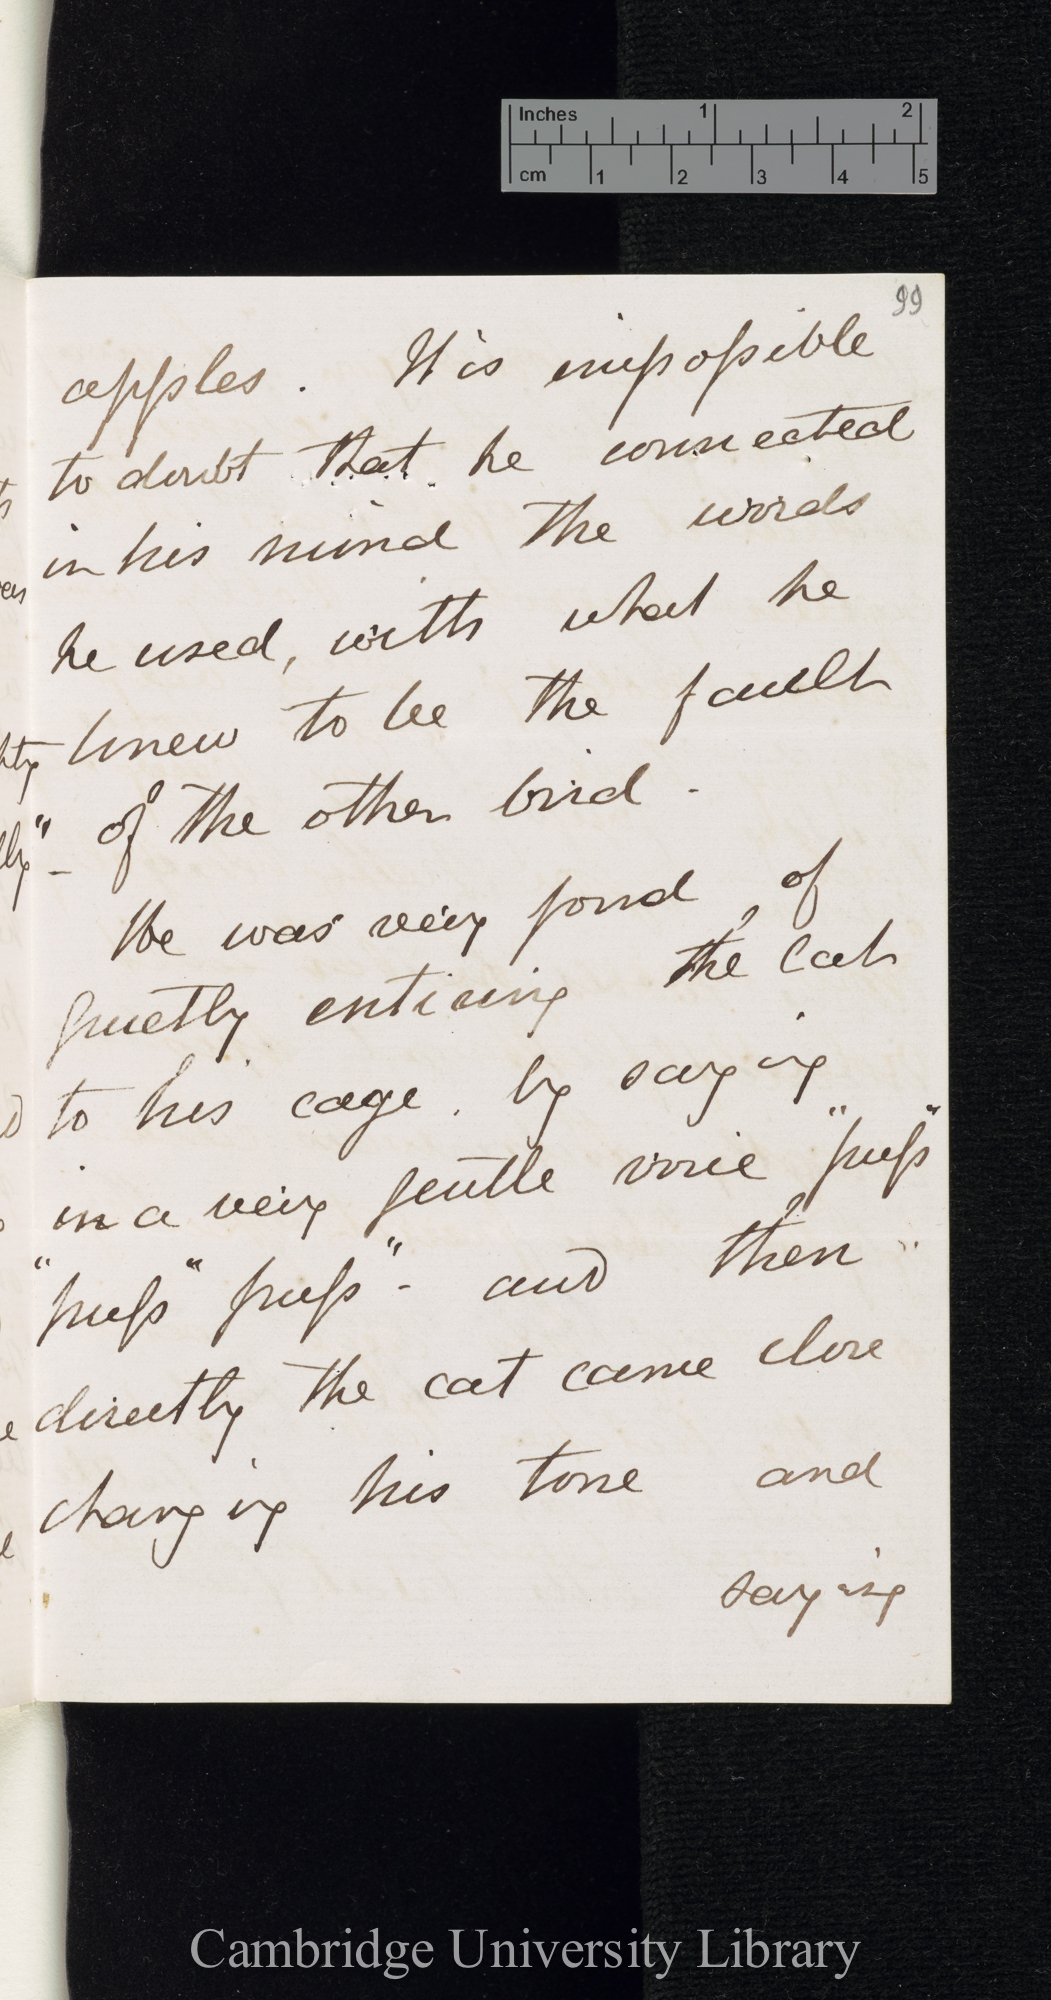 Inches 1 2
cm 1 2 3 4 5
99
apples. It is impossible
to doubt that he connected
in his mind the words
he used, with what he
knew to be the fault
of the other bird.
He was very fond of
quietly enticing the cat
to his cage. by saying
in a very gentle voice "puss"
"puss" puss" - and then
directly the cat came close
changing his tone and
saying
Cambridge University Library